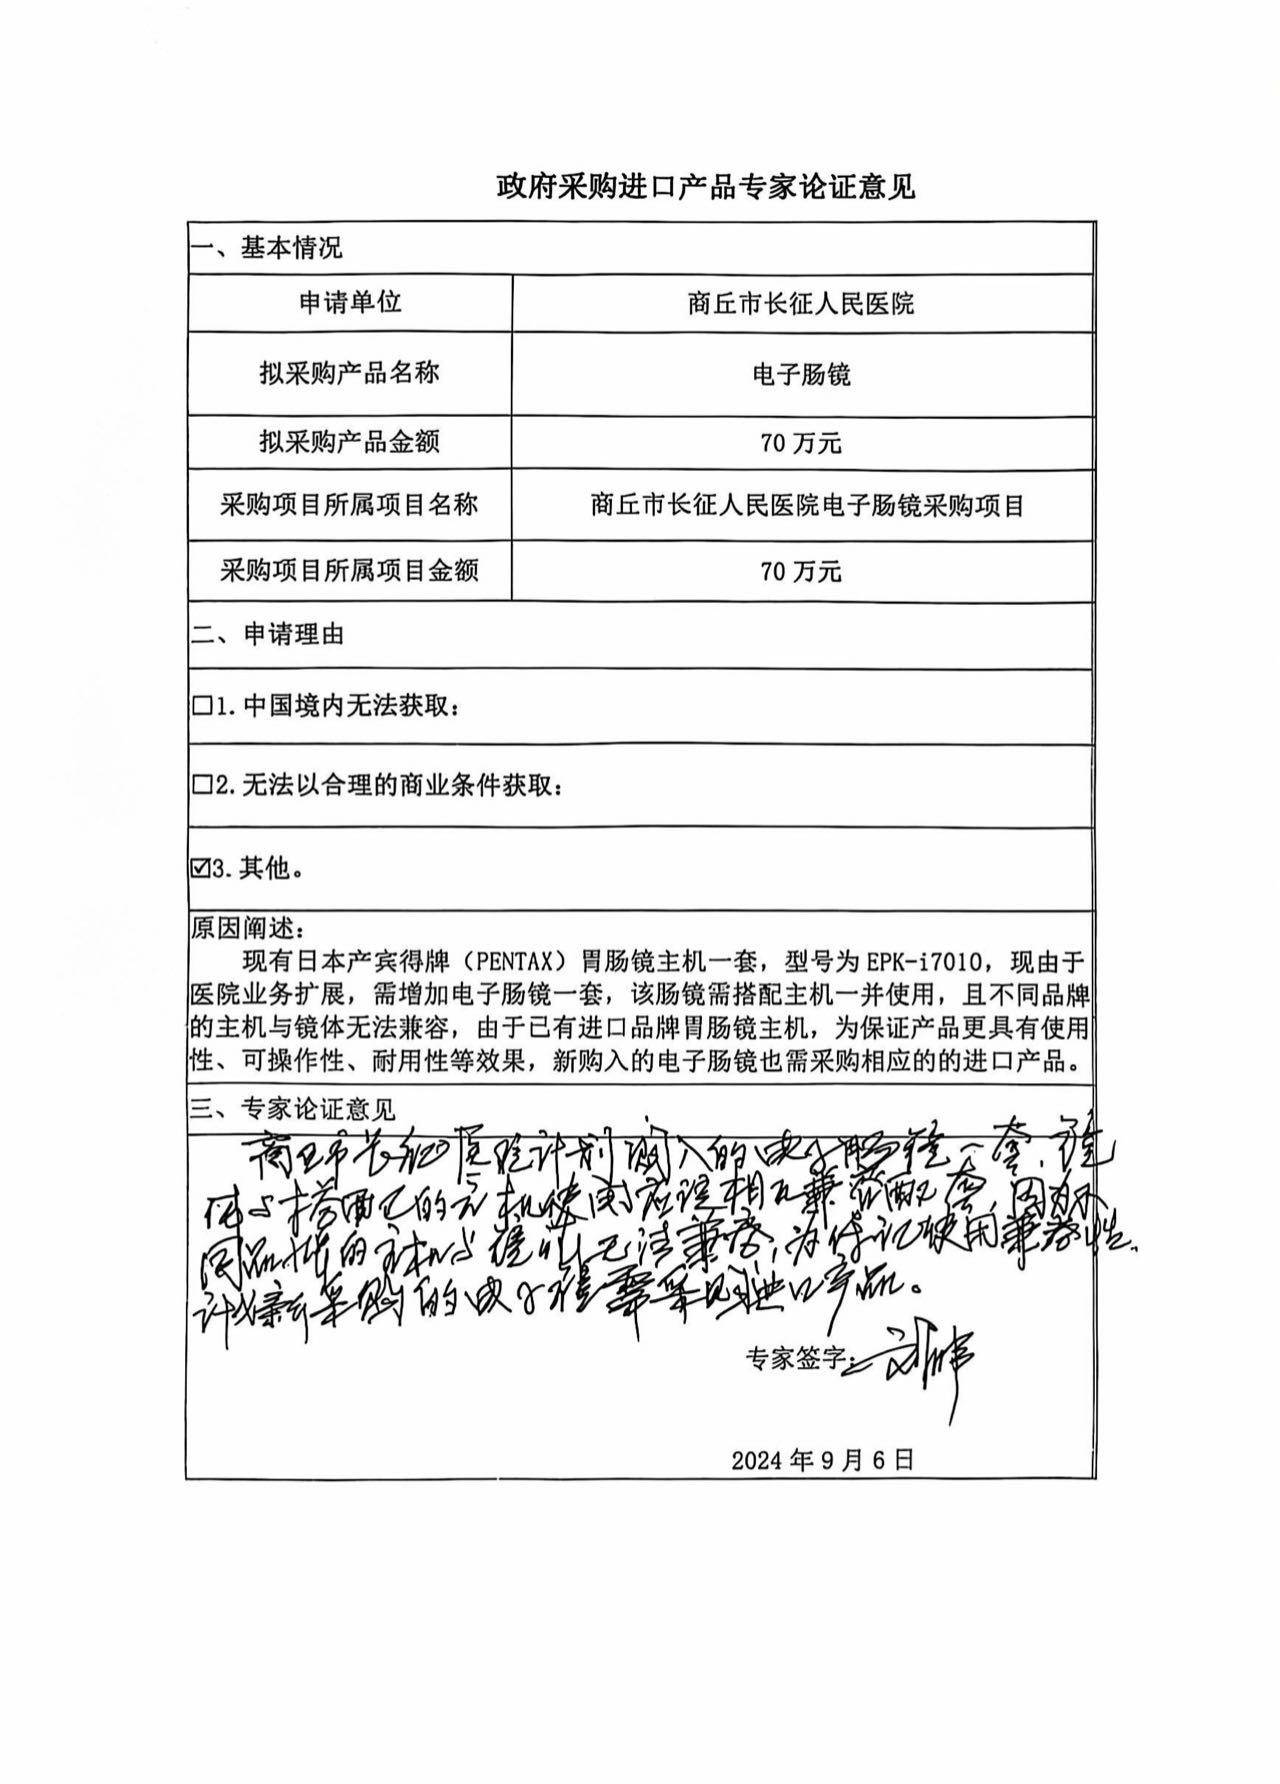 政府采购进口产品专家论证意见
一、基本情况
申请单位 商丘市长征人民医院
拟采购产品名称 电子肠镜
拟采购产品金额 70 万元
采购项目所属项目名称 商丘市长征人民医院电子肠镜采购项目
采购项目所属项目金额 70 万元
二、申请理由
☐1.中国境内无法获取：
☐2.无法以合理的商业条件获取：
☑3.其他。
原因阐述：
现有日本产宾得牌（PENTAX）胃肠镜主机一套，型号为 EPK-i7010，现由于
医院业务扩展，需增加电子肠镜一套，该肠镜需搭配主机一并使用，且不同品牌
的主机与镜体无法兼容，由于已有进口品牌胃肠镜主机，为保证产品更具有使用
性、可操作性、耐用性等效果，新购入的电子肠镜也需采购相应的的进口产品。
三、专家论证意见
商丘市长征医院计划购入的电子肠镜一套，镜
体与搭配的主机使用应该相互兼容配套，因不
同品牌的主机与镜体无法兼容，为保证使用兼容性，
计划新采购的电子镜需采购进口产品。
专家签字：
2024 年 9 月 6 日